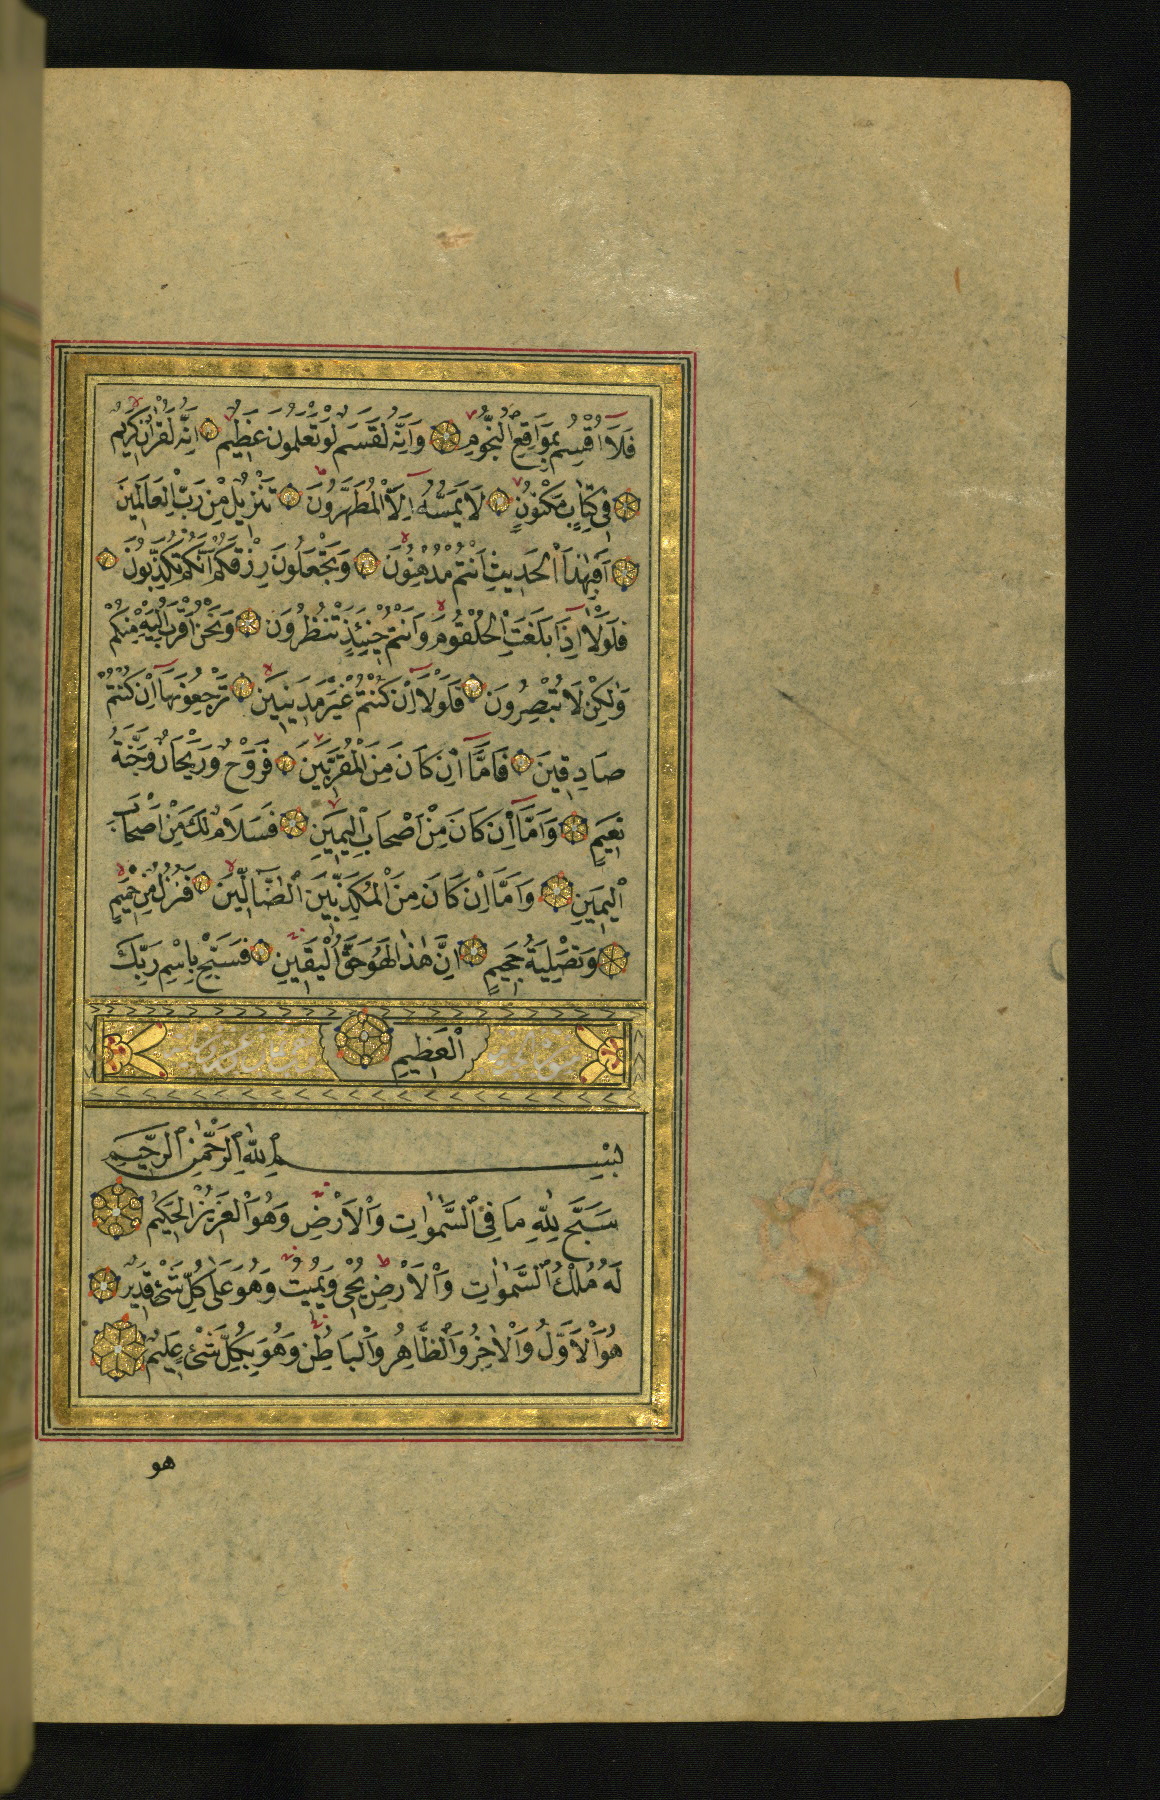 فَلَا اُقْسِمُ بِمَوَاقِعِ النُّجُومِ وَاِنَّهُ لَقَسَمٌ لَوْ تَعْلَمُونَ عَظِيمٌ اِنَّهُ لَقُرْاٰنٌ كَرِيمٌ
فِى كِتَابٍ مَكْنُونٍ لَا يَمَسُّهُ اِلَّا الْمُطَهَّرُونَ تَنْزِيلٌ مِنْ رَبِّ الْعَالَمِينَ
اَفَبِهٰذَا الْحَدِيثِ اَنْتُمْ مُدْهِنُونَ وَتَجْعَلُونَ رِزْقَكُمْ اَنَّكُمْ تُكَذِّبُونَ
فَلَوْلَا اِذَا بَلَغَتِ الْحُلْقُومَ وَاَنْتُمْ حِينَئِذٍ تَنْظُرُونَ وَنَحْنُ اَقْرَبُ اِلَيْهِ مِنْكُمْ
وَلٰكِنْ لَا تُبْصِرُونَ فَلَوْلَا اِنْ كُنْتُمْ غَيْرَ مَدِينِينَ تَرْجِعُونَهَا اِنْ كُنْتُمْ
صَادِقِينَ فَاَمَّا اِنْ كَانَ مِنَ الْمُقَرَّبِينَ فَرَوْحٌ وَرَيْحَانٌ وَجَنَّةُ
نَعِيمٍ وَاَمَّا اِنْ كَانَ مِنْ اَصْحَابِ الْيَمِينِ فَسَلَامٌ لَكَ مِنْ اَصْحَابِ
الْيَمِينِ وَاَمَّا اِنْ كَانَ مِنَ الْمُكَذِّبِينَ الضَّالِّينَ فَنُزُلٌ مِنْ حَمِيمٍ
وَتَصْلِيَةُ جَحِيمٍ اِنَّ هٰذَا لَهُوَ حَقُّ الْيَقِينِ فَسَبِّحْ بِاسْمِ رَبِّكَ
الْعَظِيمِ
بِسْمِ اللّٰهِ الرَّحْمٰنِ الرَّحِيمِ
سَبَّحَ لِلّٰهِ مَا فِى السَّمٰوَاتِ وَالْاَرْضِ وَهُوَ الْعَزِيزُ الْحَكِيمُ
لَهُ مُلْكُ السَّمٰوَاتِ وَالْاَرْضِ يُحْيِى وَيُمِيتُ وَهُوَ عَلَى كُلِّ شَىْءٍ قَدِيرٌ
هُوَ الْاَوَّلُ وَالْاٰخِرُ وَالظَّاهِرُ وَالْبَاطِنُ وَهُوَ بِكُلِّ شَىْءٍ عَلِيمٌ
هو